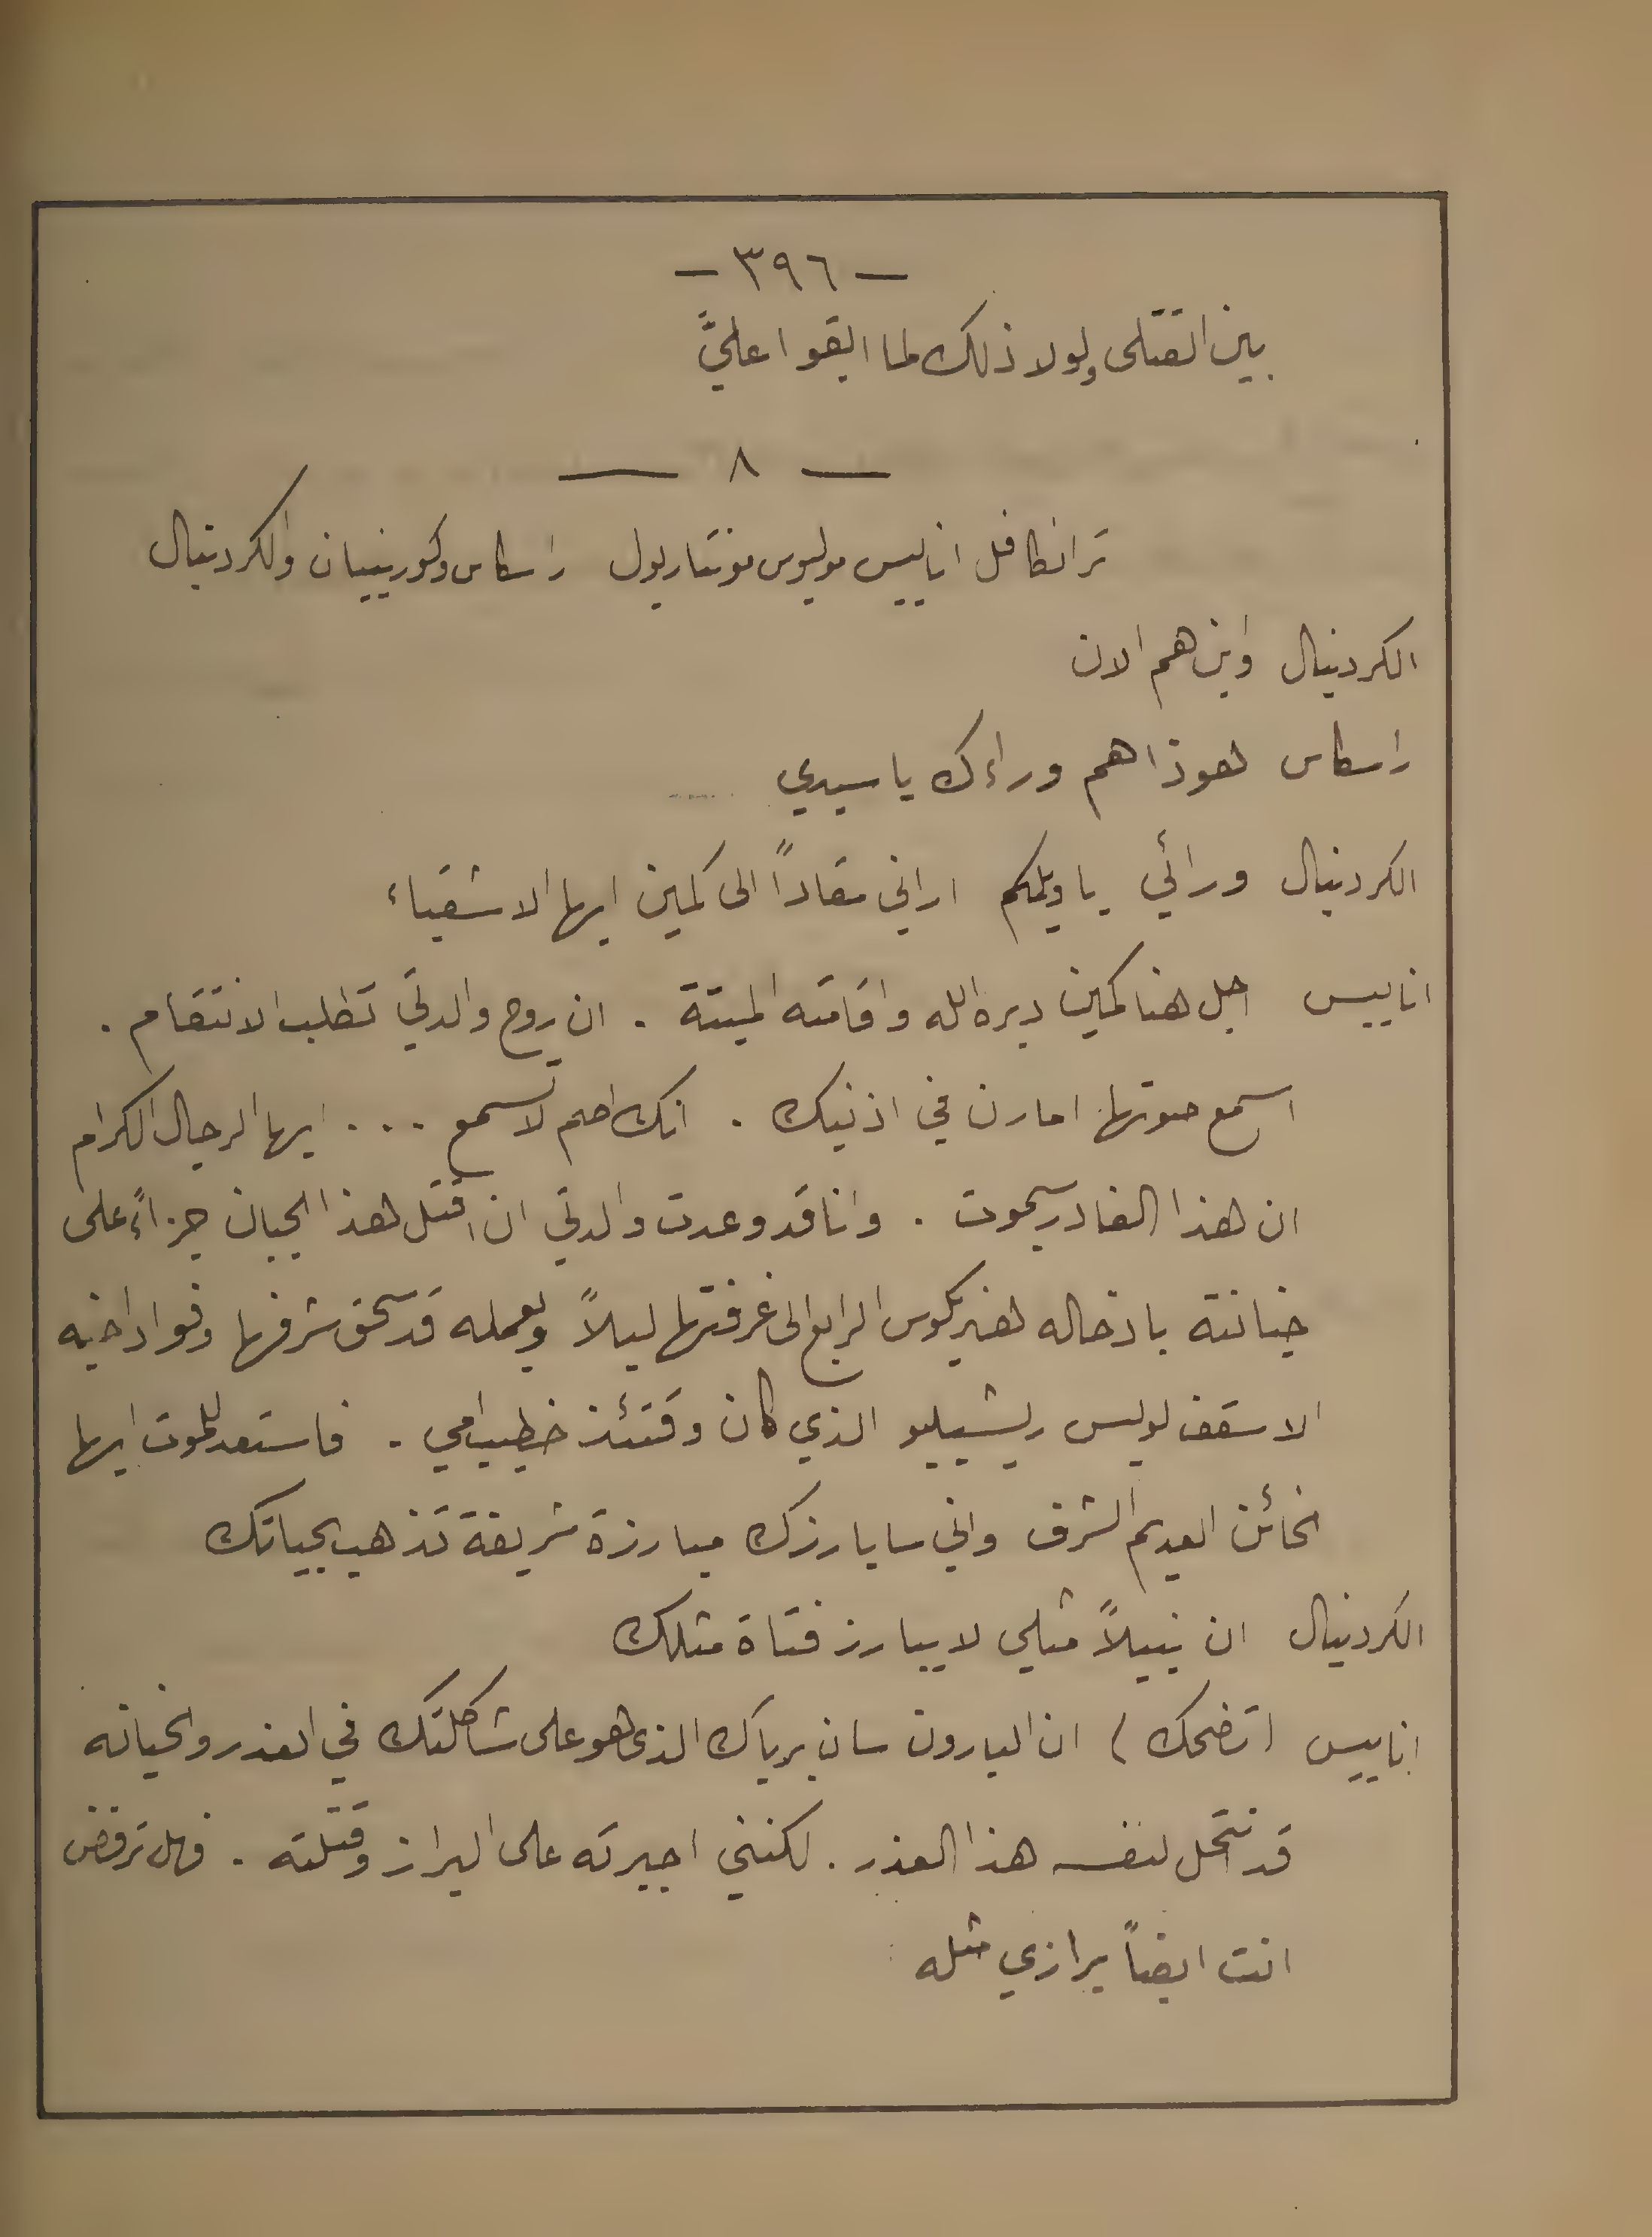 — ٣٩٦ —
بين القتلى ولولا ذلك لما ابقوا عليَّ
— ٨ —
ترانكافل اناييس موليوس مونتاريول راسكاس وكورينيان والكردينال
الكردينال واين هم الان
راسكاس هوذا هم وراءك يا سيدي
الكردينال ورائي يا ويلكم اراني مقاداً الى كمين ايها الاشقياء
اناييس اجل هنا كمين دبره الله واقامته الميتة . ان روح والدتي تطلب الانتقام .
اسمع صوتها اما رن في اذنيك . انك اصم لا تسمع ... ايها الرجال الكرام
ان هذا الغادر سيموت . وانا قد وعدت والدتي ان اقتل هذا الجبان جزاءً على
خيانته بادخاله هنريكوس الرابع الى غرفتها ليلاً وبعمله قد سحق شرفها وفواد اخيه
الاسقف لويس ريشيليو الذي كان وقتئذ خطيب امي . فاستعد للموت ايها
الخائن العديم الشرف واني سابارزك مبارزة شريفة تذهب بحياتك
الكردينال ان نبيلاً مثلي لا يبارز فتاة مثلك
اناييس (تضحك) ان البارون سان برياك الذي هو على شاكلتك في الغدر والخيانه
قد انتحل لنفسه هذا العذر . لكنني اجبرته على البراز وقتلته . فهل ترفض
انت ايضاً برازي مثله